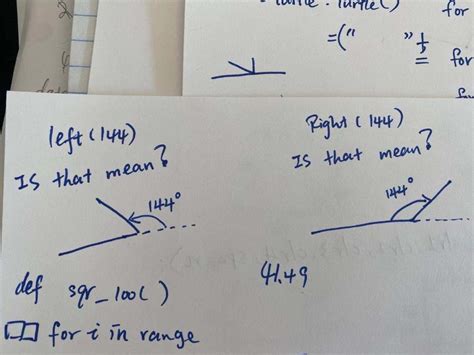 turtle . Turtle()
for
=(" "
for
left (144)
Is that mean?
144°
def sqr_100( )
for i in range
Right (144)
Is that mean?
144°
41.49